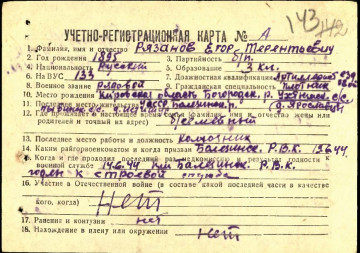 143 142
УЧЕТНО-РЕГИСТРАЦИОННАЯ КАРТА № А
1. Фамилия, имя и отчество Рязанов Егор Терентьевич
2. Год рождения 1895 3. Партийность б/п.
4. Национальность Русский 5. Образование 3 кл.
6. На ВУС 133 7. Должностная квалификация Артиллерист
8. Военное звание Рядовой 9. Гражданская специальность Плотник
10. Место рождения Кировская область, Богородск. р.
11. Последнее место жительства УАССР Балезинск. р.
12. В настоящее время фамилия, имя и отчество жены или
родителей и точный их адрес)
13. Последнее место работы и должность колхозник
14. Каким райвоенкоматом и когда призван Балезинск. Р.В.К. 13.6.44.
15. Когда и где проходил последний раз медкомиссию и результат годности к
военной службе 14.6.44 при Балезинск. Р.В.К.
годен к строевой службе
16. Участие в Отечественной войне (в составе какой последней части и в качестве
кого, когда) Нет
17. Ранения и контузии нет
18. Нахождение в плену или окружении Нет